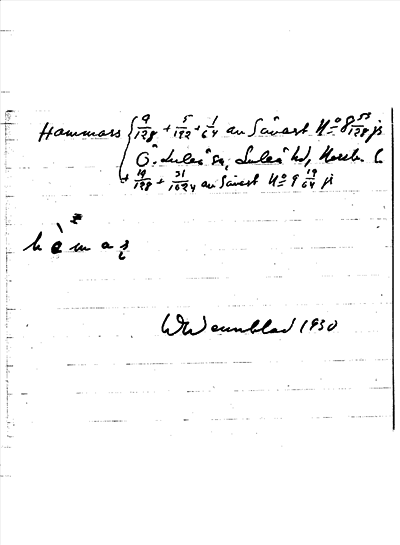 Hammars { 9/128 + 5/192 + 1/64 av Sävast No 8 53/128 js
Ö. Luleå sn, Luleå hd,
+ 19/128 + 31/1024 av Sävast No 9 19/64 js
W Wennblad 1930